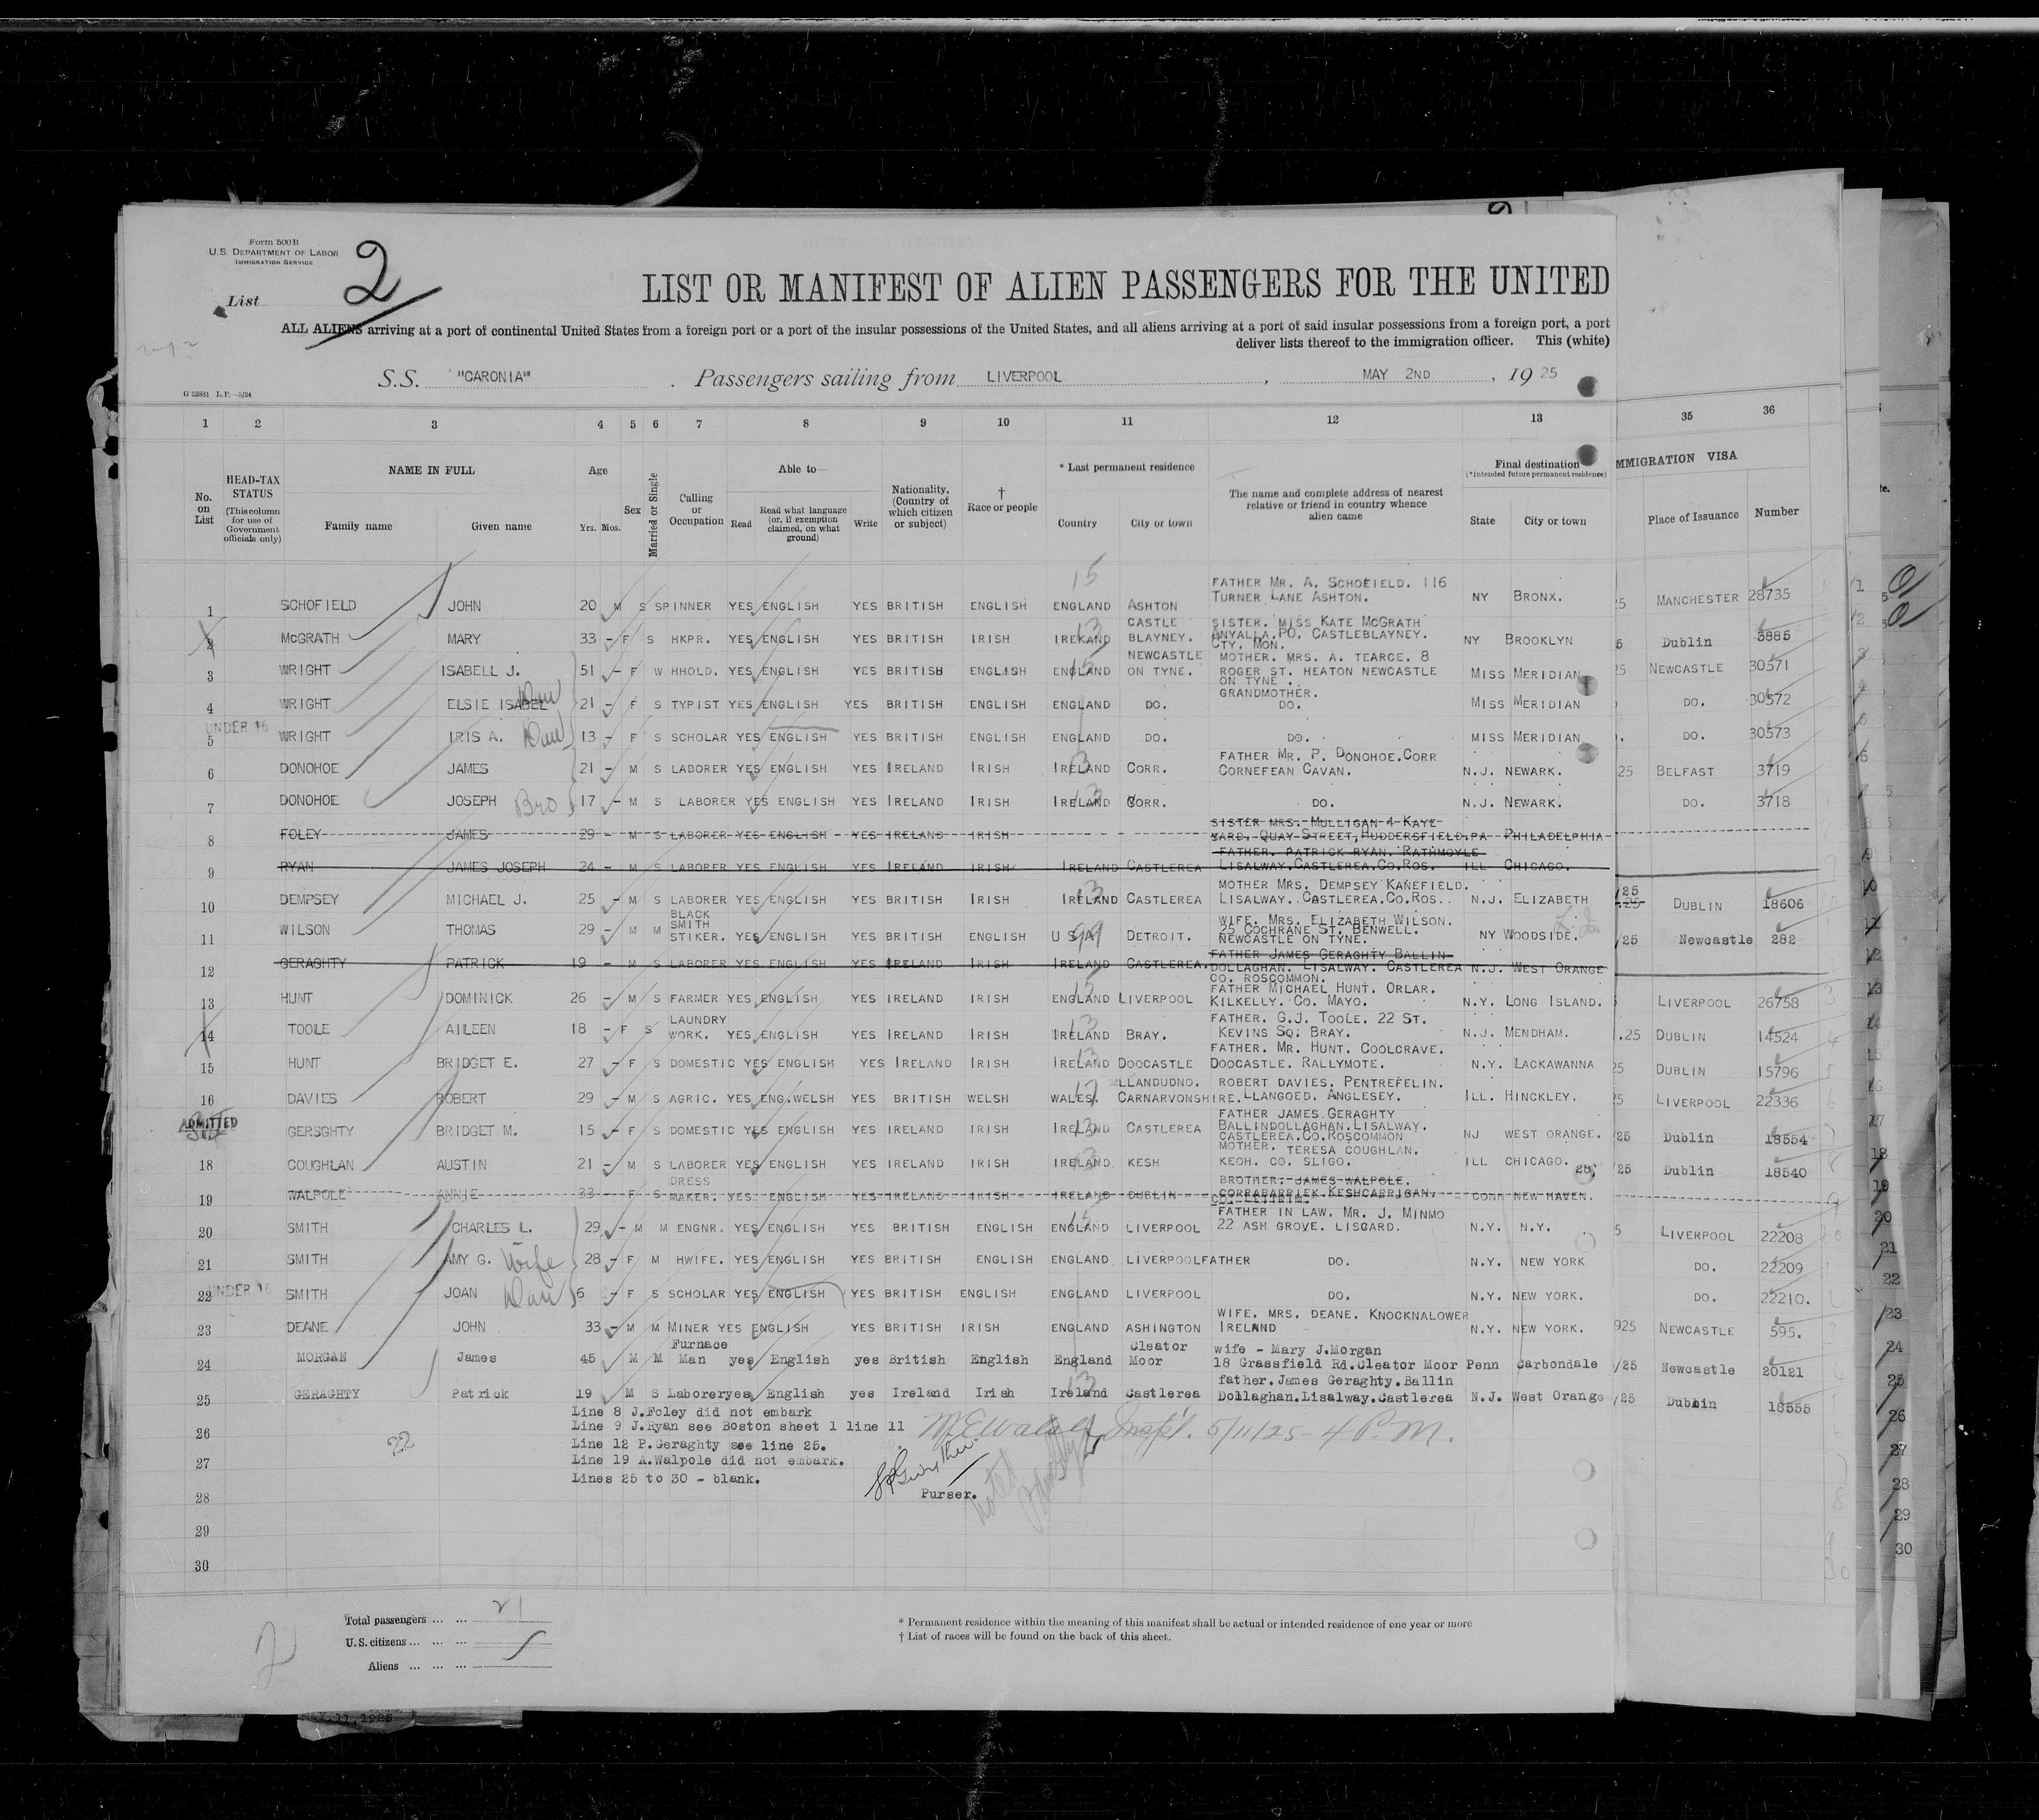 Form 500B
U.S. DEPARTMENT OF LABOR
IMMIGRATION SERVICE
List 2
LIST OR MANIFEST OF ALIEN PASSENGERS FOR THE UNITED
ALL ALIENS arriving at a port of continental United States from a foreign port or a port of the insular possessions of the United States, and all aliens arriving at a port of said insular possessions from a foreign port, a port
deliver lists thereof to the immigration officer. This (white)
S.S. "CARONIA" . Passengers sailing from LIVERPOOL , MAY 2ND , 19 25
G 23881 L.P.—5/24
1 2 3 4 5 6 7 8 9 10 11 12 13 35 36
No. on List
HEAD-TAX STATUS (This column for use of Government officials only)
NAME IN FULL Family name Given name
Age Yrs. Mos.
Sex
Married or Single
Calling or Occupation
Able to— Read Read what language (or, if exemption claimed, on what ground) Write
Nationality, (Country of which citizen or subject)
† Race or people
* Last permanent residence Country City or town
The name and complete address of nearest relative or friend in country whence alien came
Final destination (*Intended future permanent residence) State City or town
MMIGRATION VISA Place of Issuance Number
1 SCHOFIELD JOHN 20 M S SPINNER YES ENGLISH YES BRITISH ENGLISH 15 ENGLAND ASHTON FATHER MR. A. SCHOFIELD. 116 TURNER LANE ASHTON. NY BRONX. 25 MANCHESTER 28735
2 McGRATH MARY 33 - F S HKPR. YES ENGLISH YES BRITISH IRISH 13 IREKAND CASTLE BLAYNEY. SISTER. MISS KATE McGRATH ANYALLA.PO. CASTLEBLAYNEY. CTY. MON. NY BROOKLYN 5 Dublin 3885
3 WRIGHT ISABELL J. 51 - F W HHOLD. YES ENGLISH YES BRITISH ENGLISH 15 ENGLAND NEWCASTLE ON TYNE. MOTHER. MRS. A. TEARCE. 8 ROGER ST. HEATON NEWCASTLE ON TYNE. MISS MERIDIAN 25 NEWCASTLE 30571
4 WRIGHT ELSIE ISABEL Dau 21 - F S TYPIST YES ENGLISH YES BRITISH ENGLISH ENGLAND DO. GRANDMOTHER. DO. MISS MERIDIAN DO. 30572
UNDER 16
5 WRIGHT IRIS A. Dau 13 - F S SCHOLAR YES ENGLISH YES BRITISH ENGLISH ENGLAND DO. DO. MISS MERIDIAN DO. 30573
6 DONOHOE JAMES 21 - M S LABORER YES ENGLISH YES IRELAND IRISH 13 IRELAND CORR. FATHER MR. P. DONOHOE.CORR CORNEFEAN CAVAN. N.J. NEWARK. 25 BELFAST 3719
7 DONOHOE JOSEPH Bro 17 - M S LABORER YES ENGLISH YES IRELAND IRISH 13 IRELAND CORR. DO. N.J. NEWARK. DO. 3718
8 FOLEY JAMES 29 - M S LABORER YES ENGLISH YES IRELAND IRISH SISTER MRS. MULLIGAN 4 KAYE YARD, QUAY STREET, HUDDERSFIELD. PA PHILADELPHIA
9 RYAN JAMES JOSEPH 24 - M S LABORER YES ENGLISH YES IRELAND IRISH IRELAND CASTLEREA FATHER. PATRICK RYAN. RATHMOYLE LISALWAY.CASTLEREA.CO.ROS. ILL CHICAGO.
10 DEMPSEY MICHAEL J. 25 - M S LABORER YES ENGLISH YES BRITISH IRISH 13 IRELAND CASTLEREA MOTHER MRS. DEMPSEY KANEFIELD. LISALWAY. CASTLEREA.CO.ROS.. N.J. ELIZABETH /25 DUBLIN 18606
11 WILSON THOMAS 29 - M M BLACK SMITH STIKER. YES ENGLISH YES BRITISH ENGLISH 99 U S A DETROIT. WIFE. MRS. ELIZABETH WILSON. 25 COCHRANE ST. BENWELL. NEWCASTLE ON TYNE. NY WOODSIDE. /25 Newcastle 282
12 GERAGHTY PATRICK 19 - M S LABORER YES ENGLISH YES IRELAND IRISH IRELAND CASTLEREA. FATHER JAMES GERAGHTY BALLIN DOLLAGHAN. LISALWAY. CASTLEREA CO. ROSCOMMON. N.J. WEST ORANGE
13 HUNT DOMINICK 26 - M S FARMER YES ENGLISH YES IRELAND IRISH 15 ENGLAND LIVERPOOL FATHER MICHAEL HUNT. ORLAR. KILKELLY. CO. MAYO. N.Y. LONG ISLAND. LIVERPOOL 26758
14 TOOLE AILEEN 18 - F S LAUNDRY WORK. YES ENGLISH YES IRELAND IRISH 13 IRELAND BRAY. FATHER. G.J. TOOLE. 22 ST. KEVINS SQ. BRAY. N.J. MENDHAM. .25 DUBLIN 14524
15 HUNT BRIDGET E. 27 - F S DOMESTIC YES ENGLISH YES IRELAND IRISH 13 IRELAND DOOCASTLE FATHER. MR. HUNT. COOLGRAVE. DOOCASTLE. RALLYMOTE. N.Y. LACKAWANNA 25 DUBLIN 15796
16 DAVIES ROBERT 29 - M S AGRIC. YES ENG.WELSH YES BRITISH WELSH 17 WALES. LLANDUDNO. CARNARVONSHIRE. ROBERT DAVIES. PENTREFELIN. LLANGOED. ANGLESEY. ILL. HINCKLEY. 25 LIVERPOOL 22336
ADMITTED
GERSGHTY BRIDGET M. 15 - F S DOMESTIC YES ENGLISH YES IRELAND IRISH 13 IRELAND CASTLEREA FATHER JAMES GERAGHTY BALLINDOLLAGHAN.LISALWAY. CASTLEREA.CO.ROSCOMMON NJ WEST ORANGE. /25 Dublin 18554
18 COUGHLAN AUSTIN 21 - M S LABORER YES ENGLISH YES IRELAND IRISH IRELAND. KESH MOTHER. TERESA COUGHLAN. KEOH. CO. SLIGO. ILL CHICAGO. 28/25 Dublin 18540
19 WALPOLE ANNIE 33 - F S DRESS MAKER. YES ENGLISH YES IRELAND IRISH IRELAND DUBLIN BROTHER. JAMES WALPOLE. CORRABARRIEK.KESHCARRIGAN. CO. LEITRIM. CONN NEW HAVEN.
20 SMITH CHARLES L. 29 - M M ENGNR. YES ENGLISH YES BRITISH ENGLISH 15 ENGLAND LIVERPOOL FATHER IN LAW. MR. J. MINMO 22 ASH GROVE. LISCARD. N.Y. N.Y. 5 LIVERPOOL 22208
21 SMITH AMY G. Wife 28 - F M HWIFE. YES ENGLISH YES BRITISH ENGLISH ENGLAND LIVERPOOL FATHER DO. N.Y. NEW YORK DO. 22209
22 UNDER 16 SMITH JOAN Dau 6 - F S SCHOLAR YES ENGLISH YES BRITISH ENGLISH ENGLAND LIVERPOOL DO. N.Y. NEW YORK. DO. 22210.
23 DEANE JOHN 33 - M M MINER YES ENGLISH YES BRITISH IRISH ENGLAND ASHINGTON WIFE. MRS. DEANE. KNOCKNALOWER IRELAND N.Y. NEW YORK. 925 NEWCASTLE 595.
24 MORGAN James 45 M M Furnace Man yes English yes British English England Cleator Moor wife - Mary J.Morgan 18 Grassfield Rd.Cleator Moor Penn Carbondale /25 Newcastle 20121
25 GERAGHTY Patrick 19 M S Laborer yes English yes Ireland Irish 13 Ireland Castlerea father.James Geraghty.Ballin Dollaghan.Lisalway.Castlerea N.J. West Orange /25 Dublin 18555
Line 8 J.Foley did not embark
26 Line 9 J.Ryan see Boston sheet 1 line 11
Line 12 P.Geraghty see line 25.
27 Line 19 A.Walpole did not embark.
Lines 25 to 30 - blank.
22
Insp't. 5/11/25 - 4 P.M.
28 Purser.
29
30
Total passengers ... ... 21
U.S. citizens ... ... ...
Aliens ... ... ...
* Permanent residence within the meaning of this manifest shall be actual or intended residence of one year or more
† List of races will be found on the back of this sheet.
2